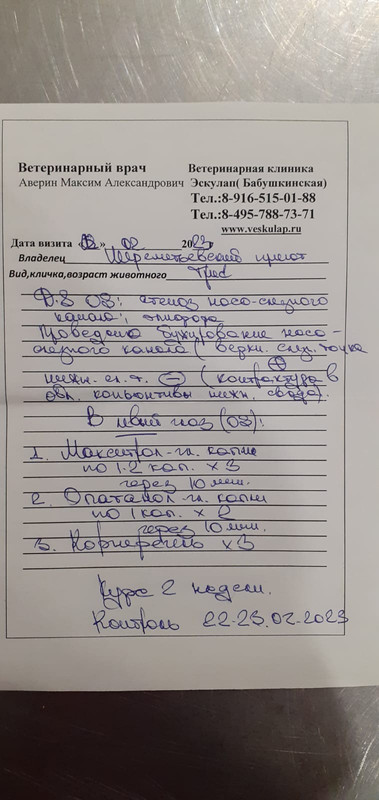 Ветеринарный врач Ветеринарная клиника
Аверин Максим Александрович Эскулап( Бабушкинская)
Тел.:8-916-515-01-88
Тел.:8-495-788-73-71
www.veskulap.ru
Дата визита « » 02 2023г
Владелец Шереметьевский приют
Вид,кличка,возраст животного
D.S OS: стеноз носо-слезного
канала; эпифора
Проведено бужирование носо-
слезного канала ( верхн. слез. точка
⊕
нижн. сл. т. ⊖ (контрактура в
обл. конъюнктивы нижн. свода).
В левый глаз (OS):
1. Макситрол-гл. капли
по 1-2 кап. x 3
через 10 мин.
2. Опатанол-гл. капли
по 1 кап. x 2
через 10 мин.
3. Корнерегель x3
Курс 2 недели.
Контроль 22-23.02.2023